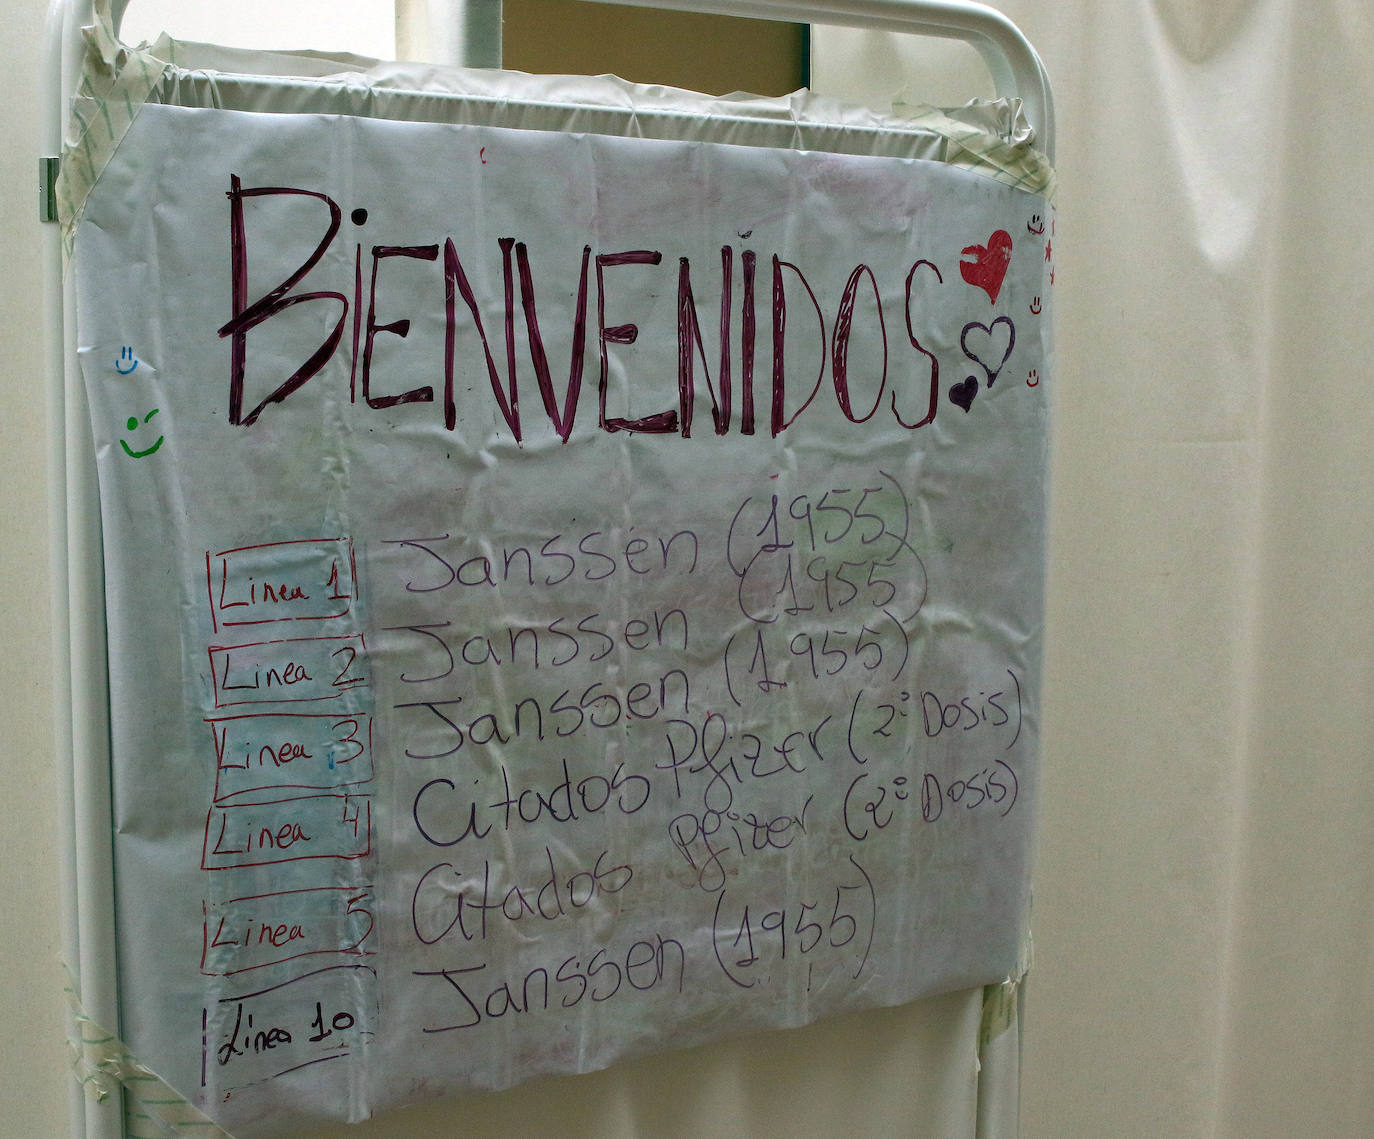 BiENVENiDOS
Linea 1 Janssen (1955)
Linea 2 Janssen (1955)
Linea 3 Janssen (1955)
Linea 4 Citados Pfizer (2º Dosis)
Linea 5 Citados Pfizer (2º Dosis)
Linea 10 Janssen (1955)